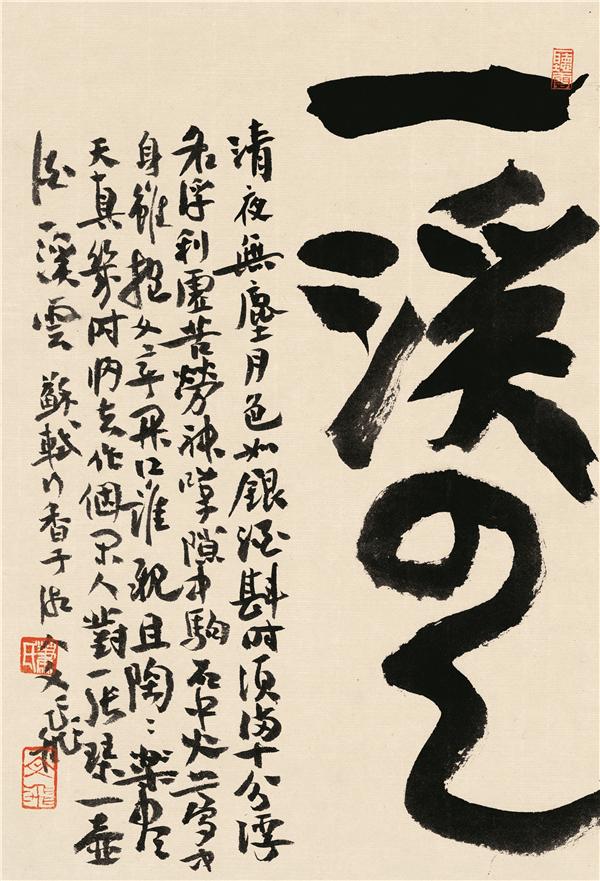 一溪云
清夜無塵月色如銀酒斟時須滿十分浮
名浮利虛苦勞神嘆隙中駒石中火夢中
身雖抱文章開口誰親且陶陶樂盡
天真幾時歸去作個閑人對一張琴一壺
酒一溪雲 蘇軾行香子 文飛
蕭氏
文飛